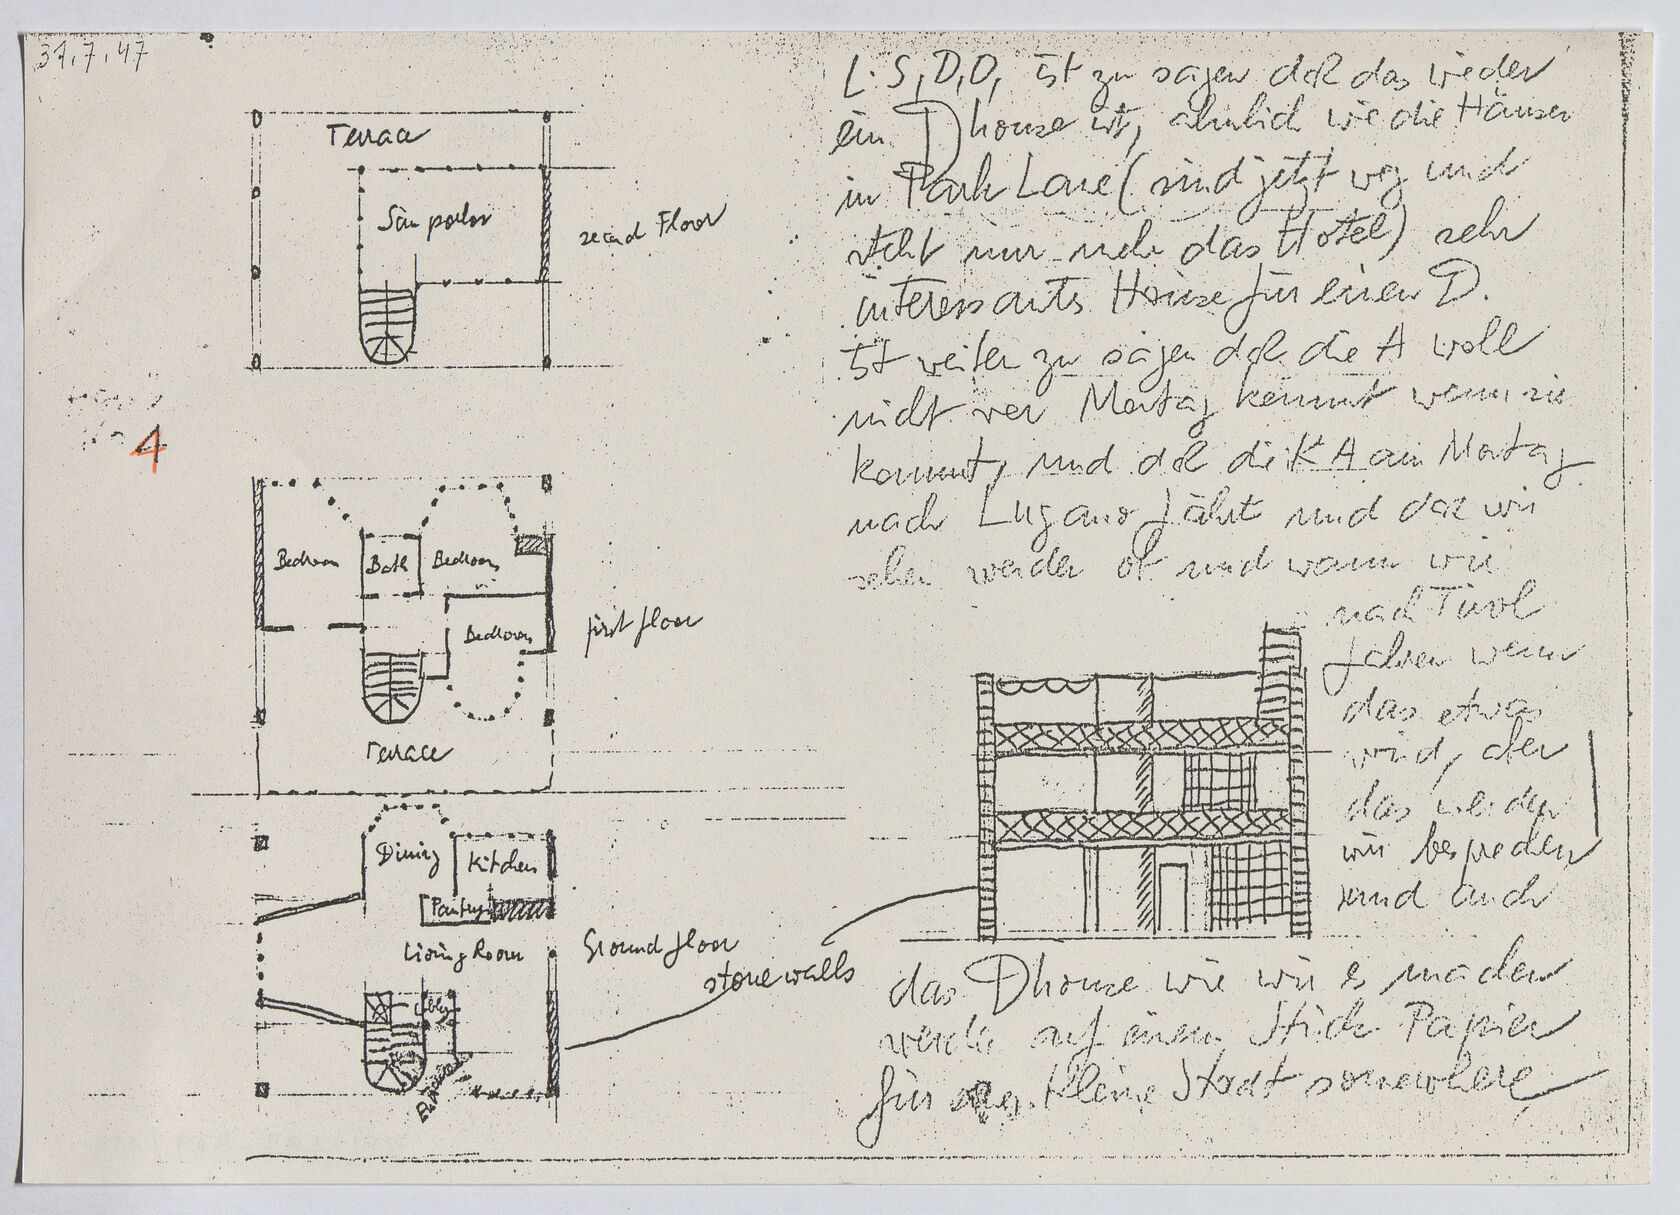 31.7.47
Terrace
Sun parlor
second Floor
4
Bedroom
Bath
Bedroom
Bedroom
first floor
Terrace
Dining
Kitchen
Pantry
Living Room
Ground floor
stone walls
L. S, D, D, ist zu sagen daß das wieder
ein Dhouse ist, ähnlich wie die Häuser
in Park Lane (sind jetzt weg und
steht nur mehr das Hotel) sehr
interessants House für einen D.
ist weiter zu sagen daß die A woll
nicht vor Montag kommt wenn sie
kommt, und daß die K A am Montag
nach Lugano fährt und daz wir
sehen werden ob und wann wir
nach Tirol
fahren wenn
das etwas
wird, aber
das werden
wir besprechen
und auch
das Dhouse wie wir es machen
werden auf einem Stück Papier
für kleine Stadt somewhere